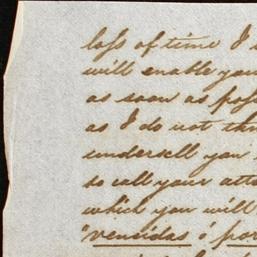 loss of time I
will enable you
as soon as
as I do not
undersell you
to call your
which you will
"vencidas o'